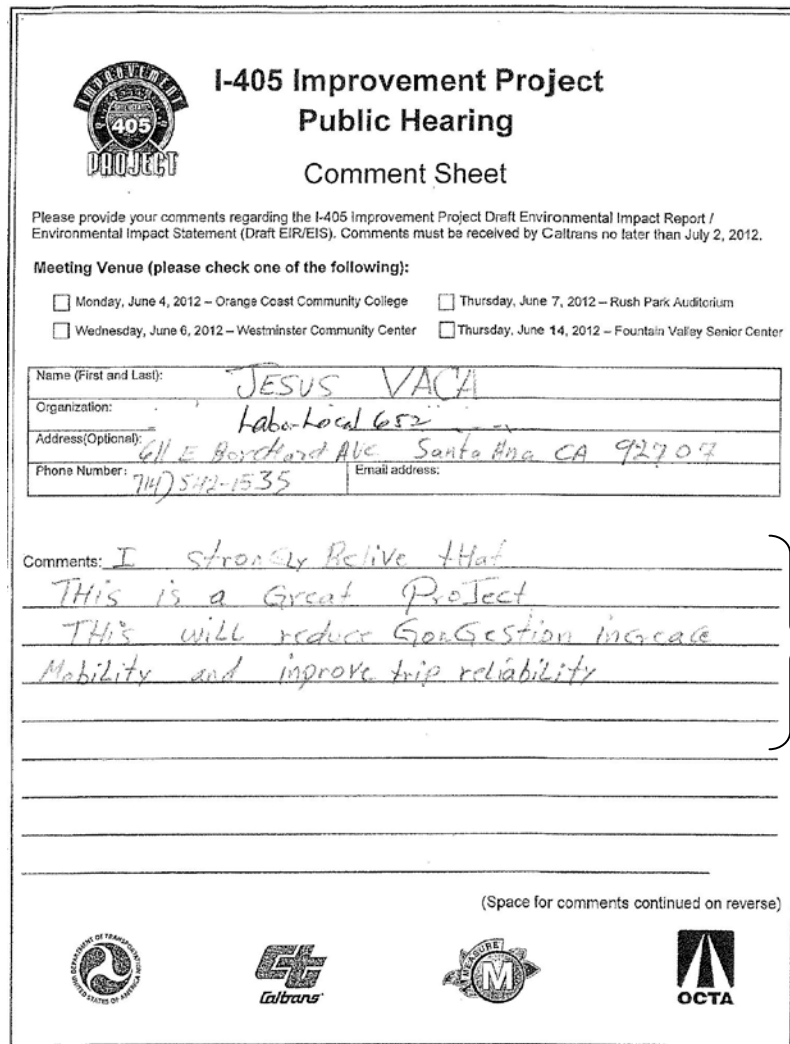 IMPROVEMENT
405
PROJECT
I-405 Improvement Project
Public Hearing
Comment Sheet
Please provide your comments regarding the I-405 Improvement Project Draft Environmental Impact Report /
Environmental Impact Statement (Draft EIR/EIS). Comments must be received by Caltrans no later than July 2, 2012.
Meeting Venue (please check one of the following):
Monday, June 4, 2012 – Orange Coast Community College
Thursday, June 7, 2012 – Rush Park Auditorium
Wednesday, June 6, 2012 – Westminster Community Center
Thursday, June 14, 2012 – Fountain Valley Senior Center
Name (First and Last): JESUS VACA
Organization: Labor Local 652
Address(Optional): 611 E Borchard Ave Santa Ana CA 92707
Phone Number: 714) 542-1535 Email address:
Comments: I strongly Belive tHat
THis is a Great ProJect
THis will reduce ConGestion increace
Mobility and inprove trip reliability
(Space for comments continued on reverse)
DEPARTMENT OF TRANSPORTATION
UNITED STATES OF AMERICA
Ct
Caltrans
MEASURE
M
OCTA